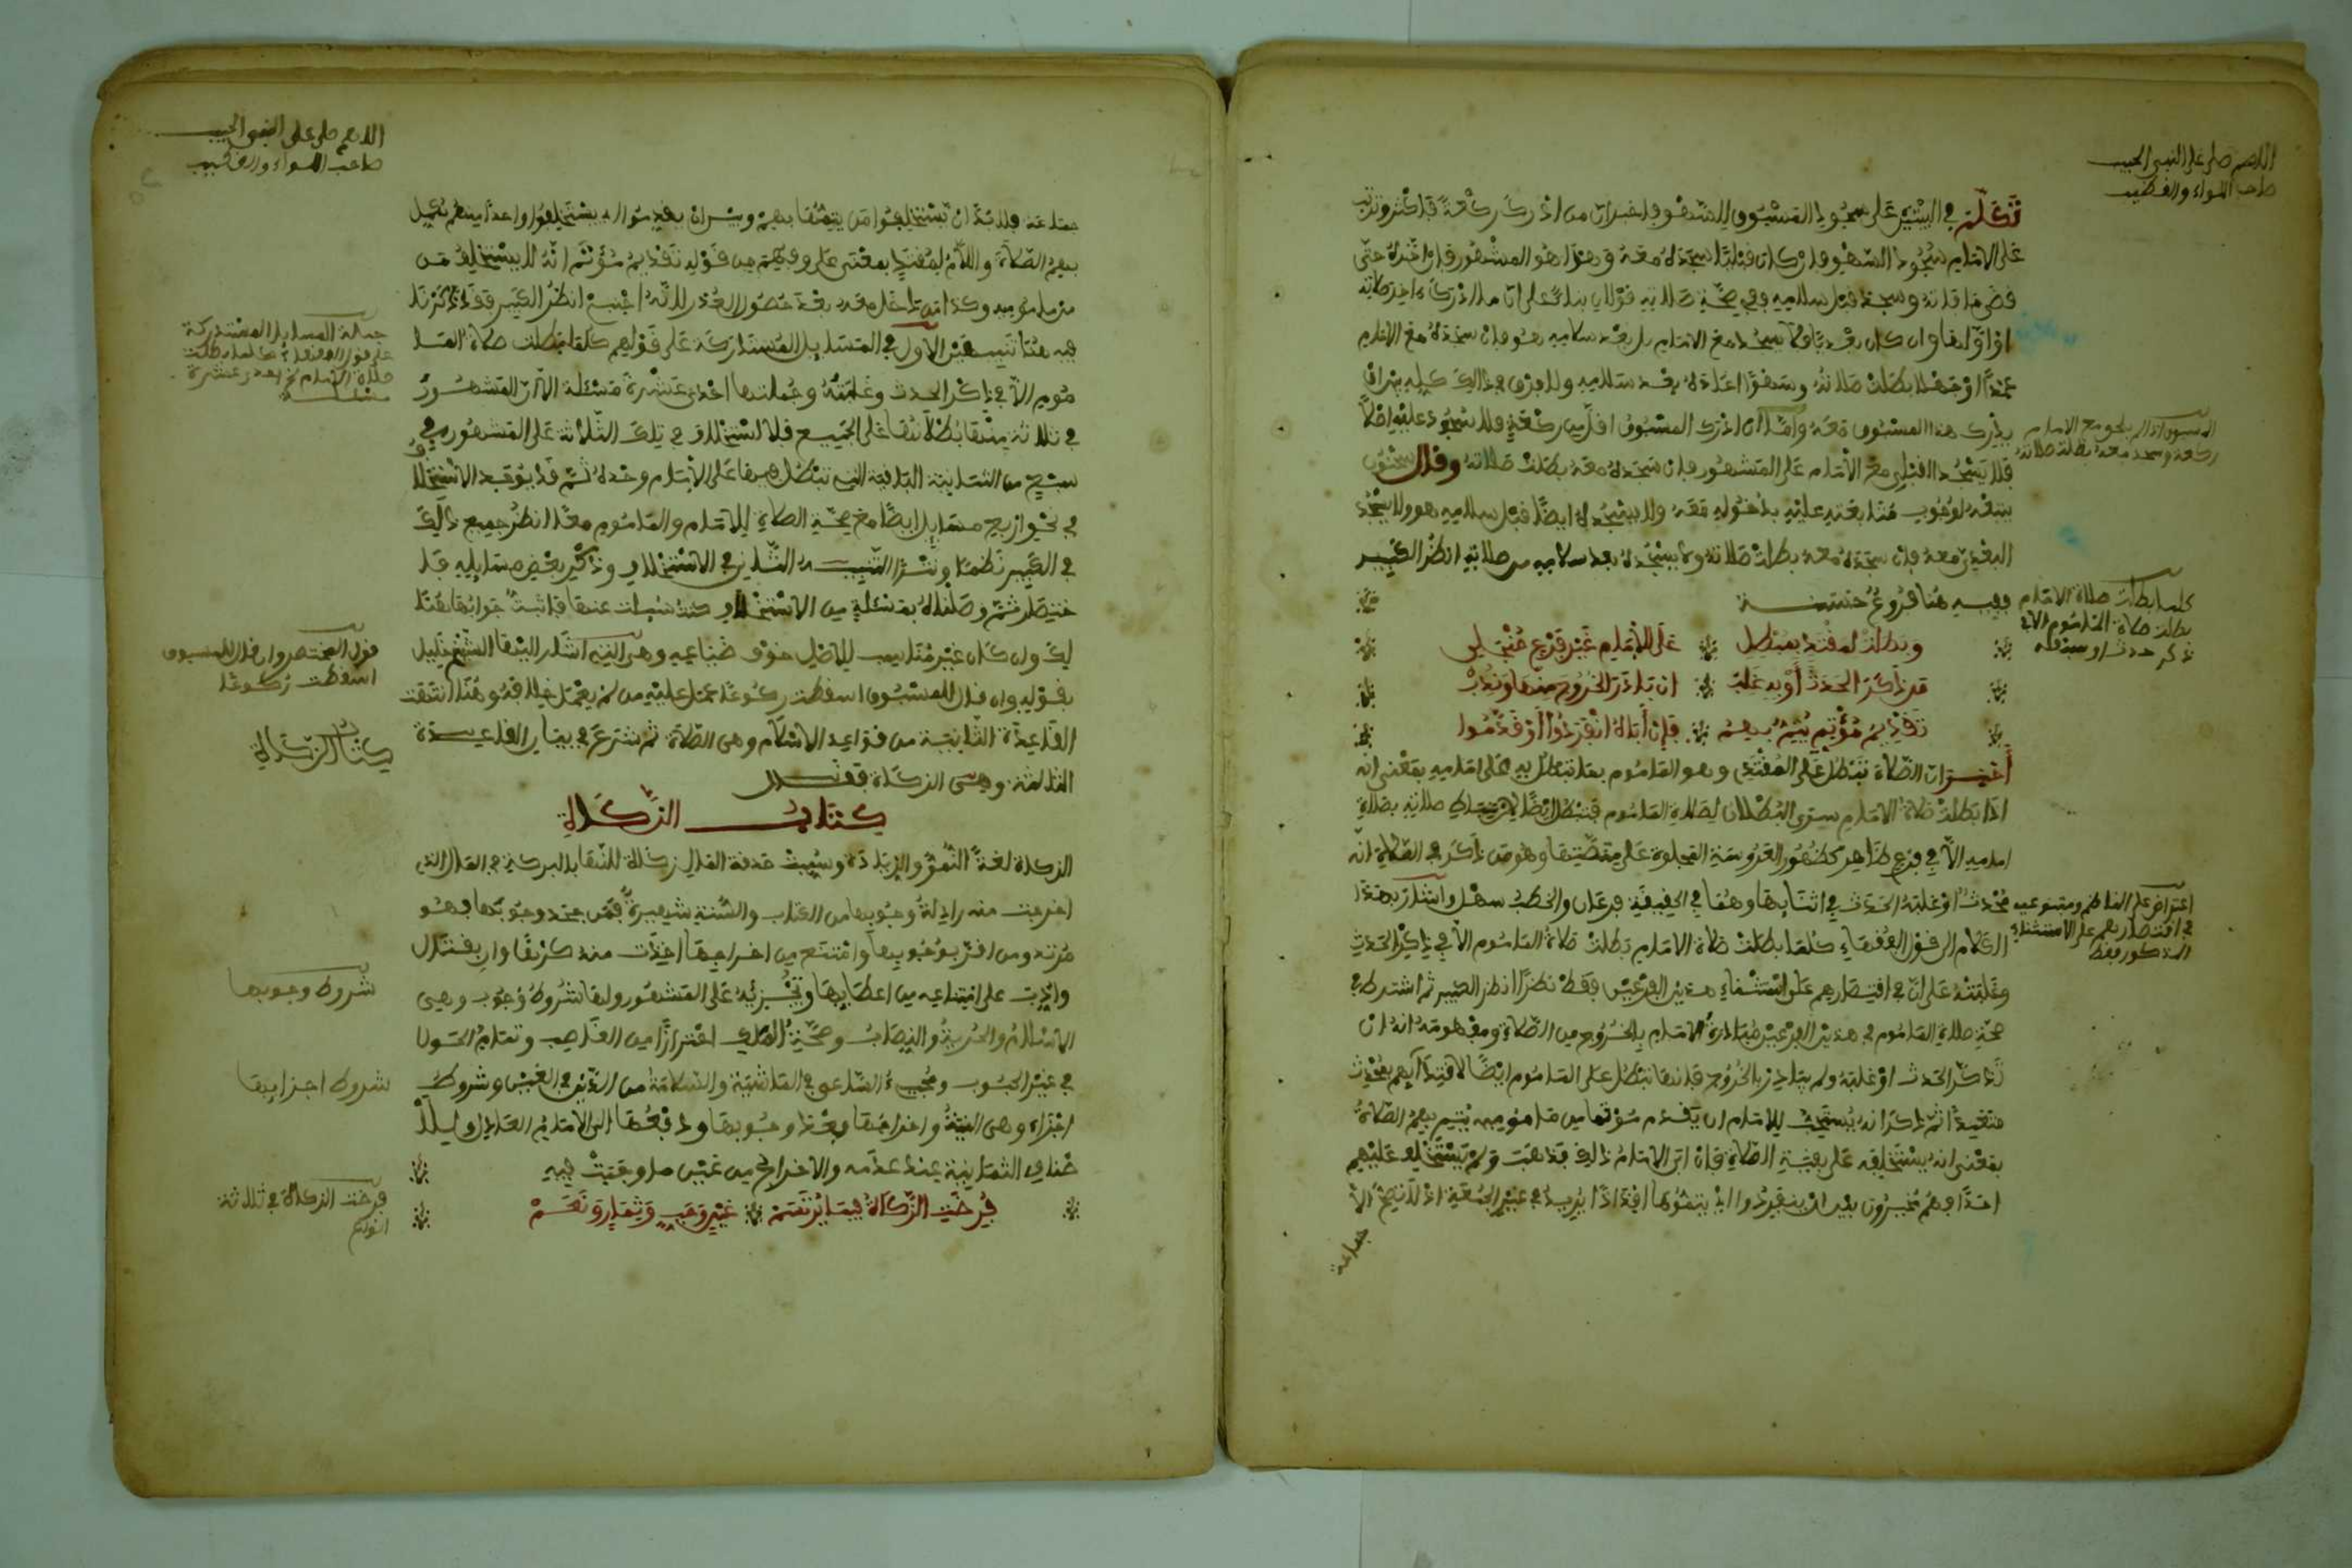 اللهم صل على النبي الحبيب
صاحب اللواء والقضيب
تكلم في البيتين على سجود المسبوق للسهو فأخبر أن من أدرك ركعة فأكثر وترتب
على الإمام سجود السهو فإن كان قبليا سجده معه وهذا هو المشهور فإن أخره حتى
قضى ما فاته وسجد قبل سلامه ففي صحة صلاته قولان بناء على أن ما أدرك آخر صلاته
أو أولها وإن كان بعديا فلا يسجد مع الإمام بل بعد سلامه هو فإن سجده مع الإمام
عمدا أو جهلا بطلت صلاته وسهوا أعاده بعد سلامه ولا فرق في ذلك كله بين أن
يدرك هذا المسبوق معه وأما إن أدرك المسبوق أقل من ركعة فلا سجود عليه أصلا
فلا يسجد القبلي مع الإمام على المشهور فإن سجده معه بطلت صلاته وقال سحنون
يتبعه لوجوب متابعته عليه بدخوله معه ولا يسجده أيضا قبل سلامه هو ولا يسجد
البعدي معه فإن سجده معه بطلت صلاته ولا يسجده بعد سلامه من صلاته انظر الكبير
ففيه هنا فروع حسنة
وبطلت لمقتد بمبطل على الإمام غير فرع منجلي
من ذكر الحدث أو به غلب إن بادر الخروج منها وندب
تقديم مؤتم يتم بهم فإن أباه انفردوا أو قدموا
أخبر أن الصلاة تبطل على المقتدي وهو المأموم بما تبطل به على إمامه بمعنى أنه
إذا بطلت صلاة الإمام سرى البطلان لصلاة المأموم فتبطل أيضا لارتباط صلاته بصلاة
إمامه إلا في فرع ظاهر كظهور العروسة المجلوة على منصتها وهو من ذكر في الصلاة أنه
محدث أو غلبه الحدث في أثنائها وهما في الحقيقة فرعان والخطب سهل وأشار بهذا
الكلام إلى قول الفقهاء كلما بطلت صلاة الإمام بطلت صلاة المأموم إلا في ذكر الحدث
وغلبته على أن في اقتصارهم على استثناء هذين الفرعين فقط نظرا انظر الكبير ثم اشترط في
صحة صلاة المأموم في هذين الفرعين مبادرة الإمام بالخروج من الصلاة ومفهومه أنه إن
تذكر الحدث أو غلبه ولم يبادر بالخروج فإنها تبطل على المأموم أيضا لاقتدائهم بمحدث
متعمدا ثم ذكر أنه يستحب للإمام أن يقدم مؤتما من مأموميه يتم بهم الصلاة
بمعنى أنه يستخلفه على بقية الصلاة فإن أبى الإمام ذلك فذهب ولم يستخلف عليهم
أحدا فهم مخيرون بين أن ينفردوا أي يتموها أفذاذا يريد في غير الجمعة إذ لا تصح إلا
جماعة
المسبوق إذا لم يلحق مع الإمام
ركعة وسجد معه بطلت صلاته
كلما بطلت صلاة الإمام
بطلت صلاة المأموم إلا في
ذكر حدث أو سبقه
اعتراض على الناظم ومتبوعيه
في اقتصارهم على الاستثناء
المذكور فقط
اللهم صل على النبي الحبيب
صاحب اللواء والقضيب
جماعة فلا بد أن يستخلفوا من يتمها بهم وبين أن يقدموا أي يستخلفوا واحدا منهم يكمل
بهم الصلاة واللام لمقتد بمعنى على وفهم من قوله تقديم مؤتم أنه لا يستخلف من
ليس مأمومه وكذا من دخل معه بعد حصول العذر لأنه أجنبي انظر الكبير فقد ذكرنا
فيه هنا تنبيهين الأول في المسائل المستدركة على قولهم كلما بطلت صلاة الإمام
إلا في ذكر الحدث وغلبته وجملتها إحدى عشرة مسئلة إلا أن المشهور
في ثلاثة منها بطلانها على الجميع فلا استخلاف في تلك الثلاثة على المشهور وفي
من الثمانية الباقية التي تبطل فيها على الإمام وحده ثم قد يوجد الاستخلاف
في نحو أربع مسائل أيضا مع صحة الصلاة للإمام والمأموم معا انظر جميع ذلك
في الكبير نظما ونثرا التنبيه الثاني في الاستخلاف وذكر بعض مسائله
لك وإن كان غير مناسب للأصل خوف ضياعه وهي التي أشار إليها الشيخ خليل
بقوله وإن قال للمسبوق أسقطت ركوعا عمل عليه من لم يعلم خلافه وهنا انتهت
القاعدة الثانية من قواعد الإسلام وهي الصلاة ثم شرع في بيان القاعدة
الثالثة وهي الزكاة فقال
كتاب الزكاة
الزكاة لغة النمو والزيادة وسميت صدقة المال زكاة للنماء بالبركة في المال الذي
أخرجت منه وأدلة وجوبها من الكتاب والسنة شهيرة فمن جحد وجوبها فهو
مرتد ومن أقر بوجوبها وامتنع من إخراجها أخذت منه كرها وإن بقتال
وأدب على امتناعه من إعطائها وتجزئه على المشهور ولها شروط وجوب وهي
الإسلام والحرية والنصاب وصحة الملك احترازا من الغاصب وتمام الحول
في غير الحبوب ومجيء الساعي في الماشية والسلامة من الدين في العين وشروط
إجزاء وهي النية وإخراجها بعد وجوبها ودفعها إلى الإمام العادل
الأصناف الثمانية عند عدمه والإخراج من عين ما وجبت فيه
فرضت الزكاة فيما يرتسم عين وحب وثمار ونعم
جملة المسائل المستدركة
على قول الفقهاء كلما بطلت
صلاة الإمام نحو إحدى عشرة
مسئلة
قول المختصر وإن قال للمسبوق
أسقطت ركوعا
كتاب الزكاة
شروط وجوبها
شروط إجزائها
فرضت الزكاة في ثلاثة
أنواع